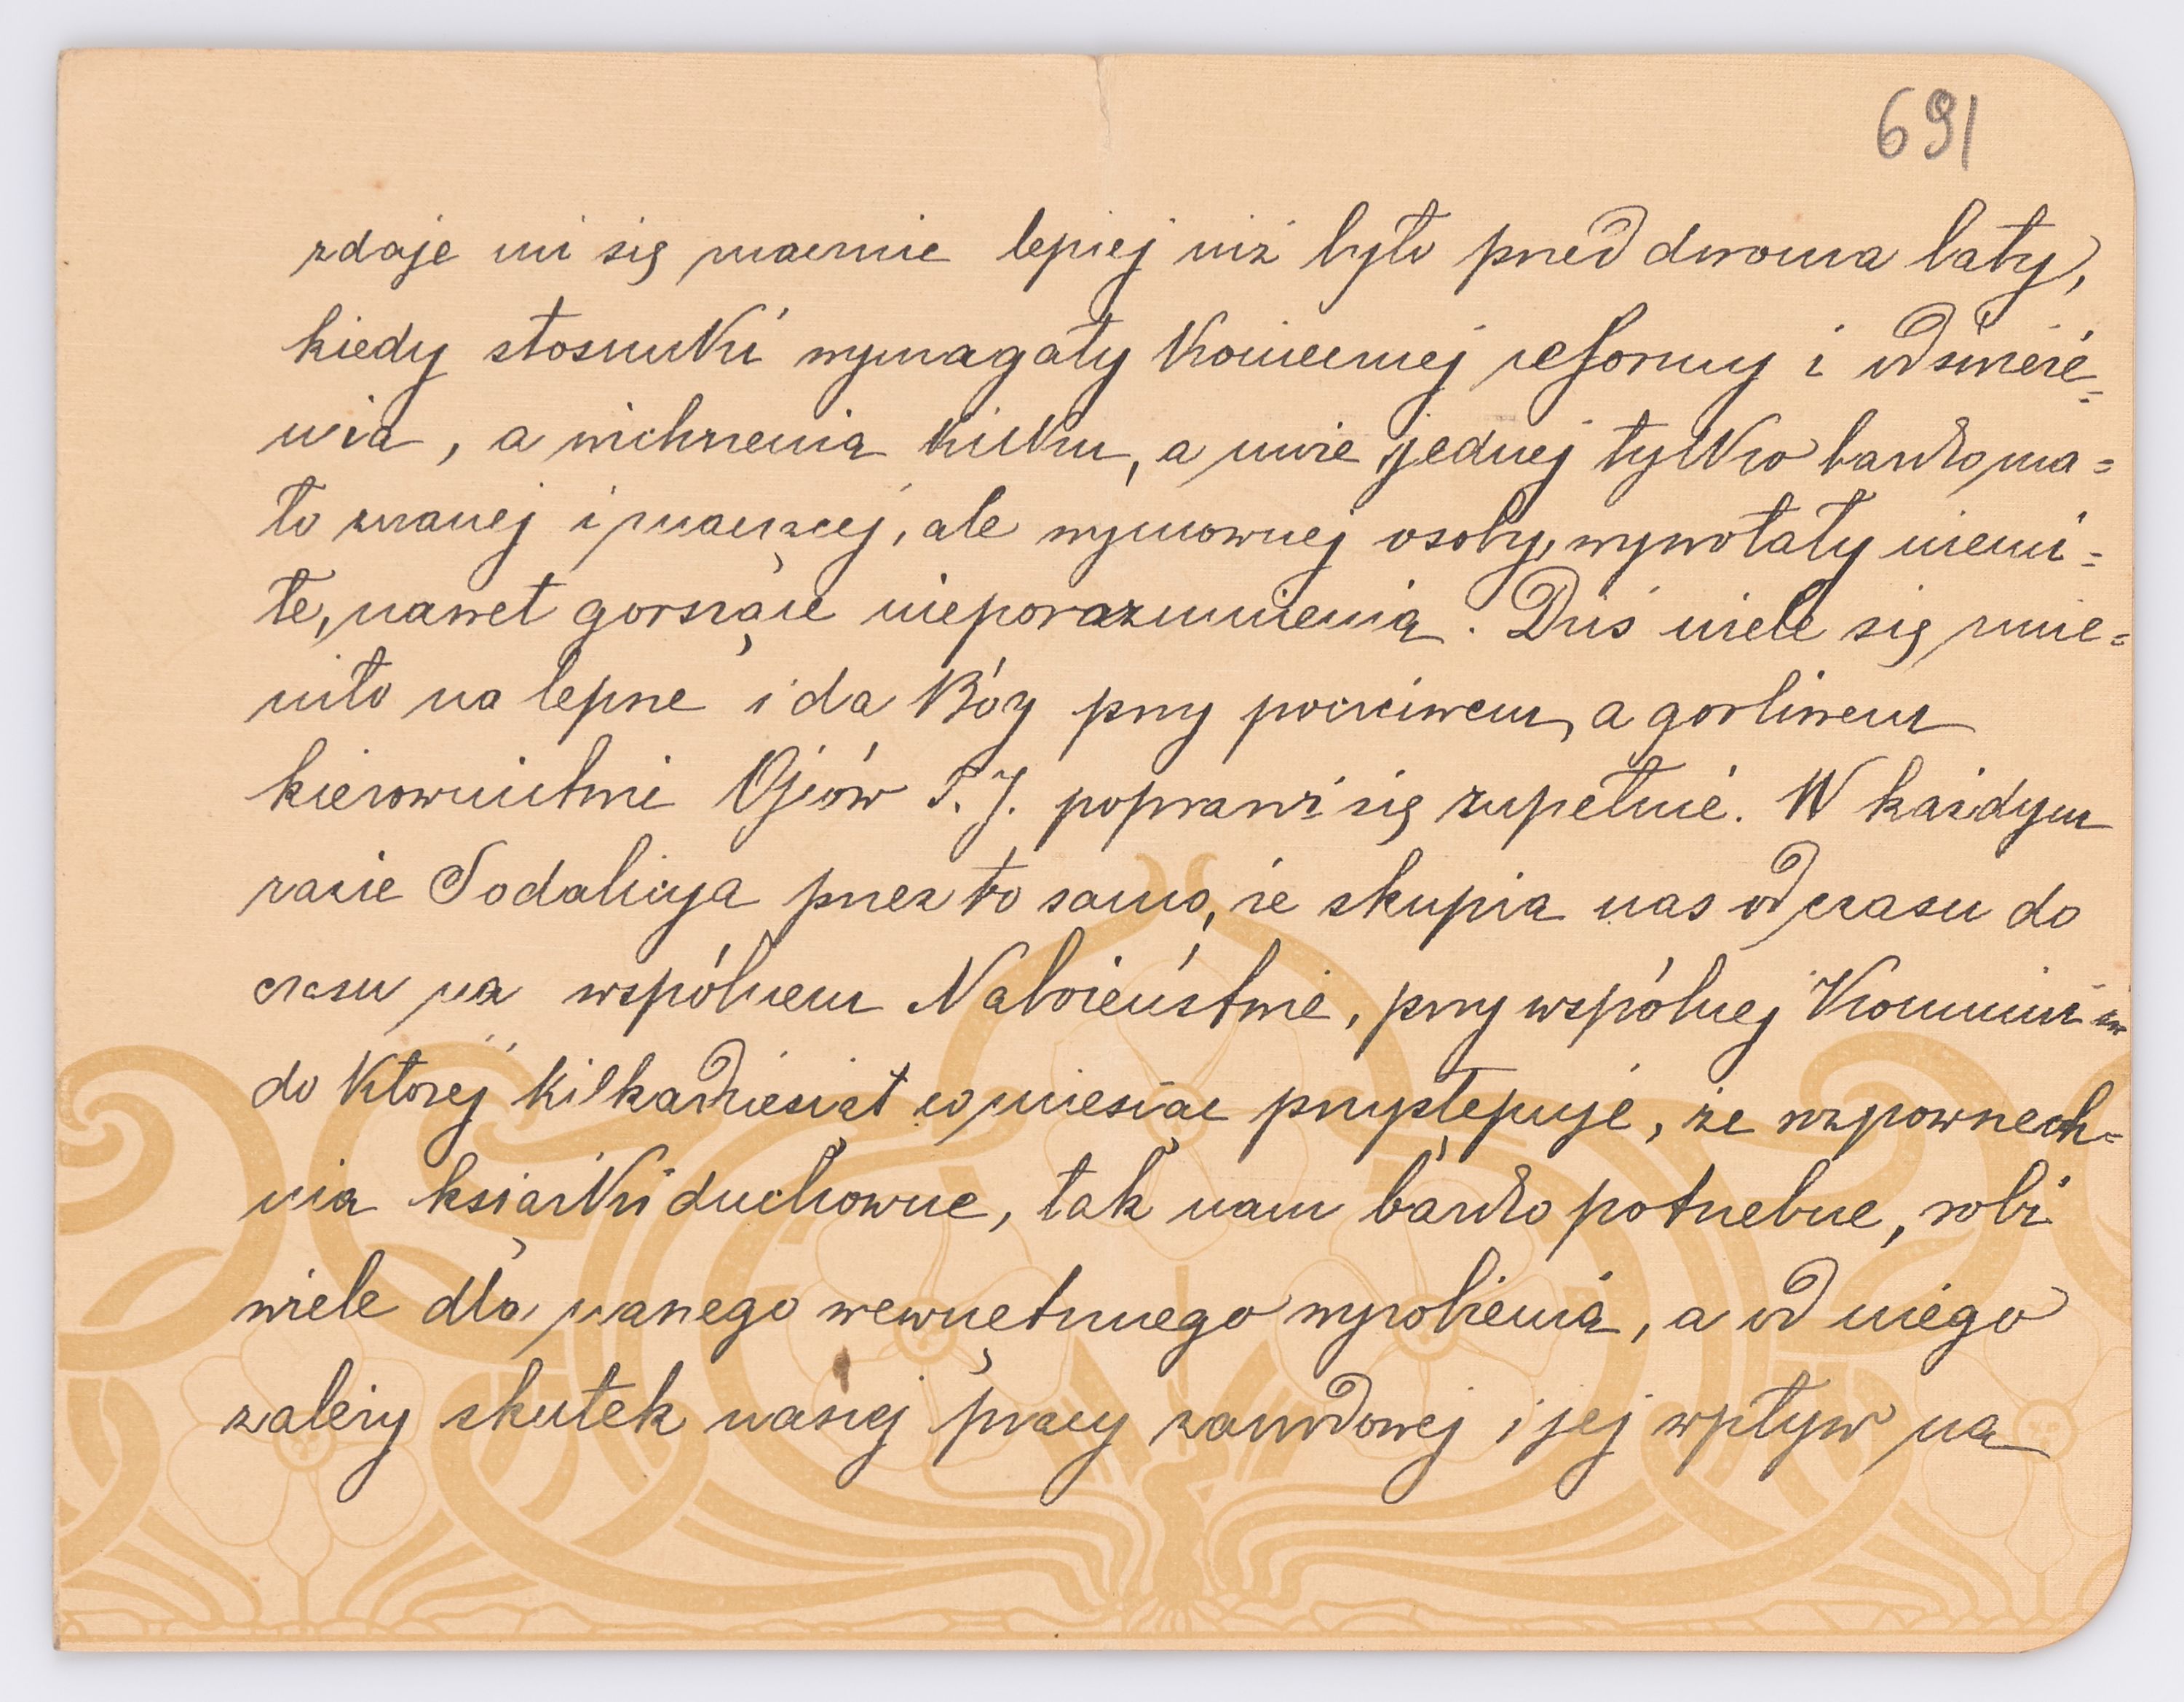 691
zdaje mi się znacznie lepiej niż było przed dwoma laty,
kiedy stosunki wymagały koniecznej reformy i odświeże=
nia, a wichrzenia kilku, a może jednej tylko bardzo ma=
ło znanej i znaczącej, ale wymownej osoby, wywołały niemi=
łe, nawet gorszące nieporozumienia. Dziś wiele się zmie=
niło na lepsze i da Bóg przy poczciwem, a gorliwem
kierownictwie Ojców T. J. poprawi się zupełnie. W każdym
razie Sodalicya przez to samo, że skupia nas od czasu do
czasu na wspólnem Nabożeństwie, przy wspólnej Kommunii
do której kilkadziesiąt co miesiąc przystępuje, że rozpowszech=
nia książki duchowne, tak nam bardzo potrzebne, robi
wiele dla naszego wewnętrznego wyrobienia, a od niego
zależy skutek naszej pracy zawodowej i jej wpływ na